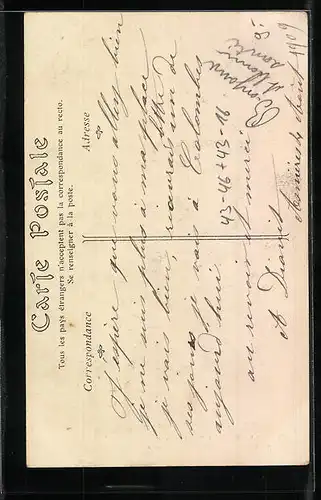 Carte Postale
Tous les pays étrangers n'acceptent pas la correspondance au recto.
Se renseigner à la poste.
Correspondance
Adresse
J'espère que vous allez bien
je ne suis plus à ma place
je vais bien,
ces jours je vais à Colombes
aujourd'hui
43-46+43-16
au revoir et merci
A
Bonjour
et bonne
santé
Asnières 4 Août 1909